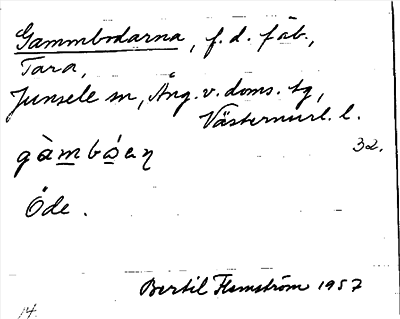 Gammbodarna, f.d. fäb.,
Tara,
Junsele sn, Ång. v. doms. tg,
Västernorrl. l.
32.
gàmbóaɳ
Öde.
Bertil Flemström 1957
14.